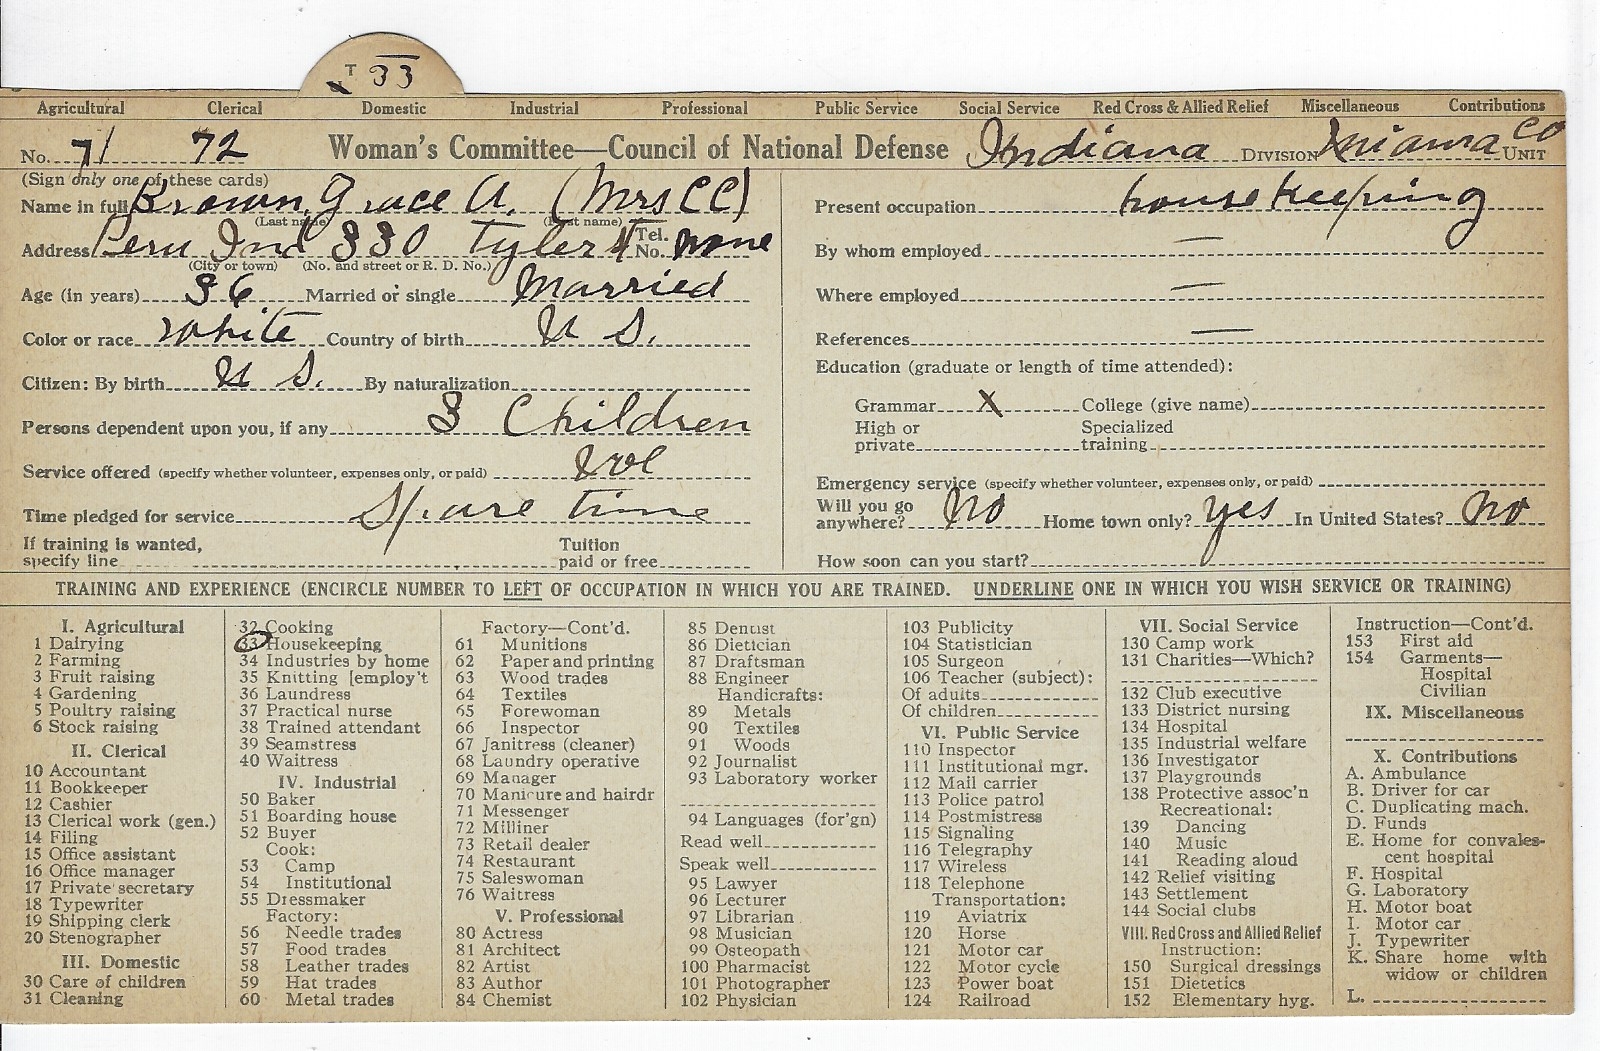 T 33
Agricultural Clerical Domestic Industrial Professional Public Service Social Service Red Cross & Allied Relief Miscellaneous Contributions
No. 71 72 Woman's Committee—Council of National Defense Indiana DIVISION Miama Co UNIT
(Sign only one of these cards)
Name in full Brown, Grace A. (Mrs CC)
(Last name) (First name)
Address Peru Ind 330 Tyler St Tel. No. none
(City or town) (No. and street or R. D. No.)
Age (in years) 36 Married or single Married
Color or race White Country of birth U S.
Citizen: By birth U S. By naturalization
Persons dependent upon you, if any 3 Children
Service offered (specify whether volunteer, expenses only, or paid) Vol
Time pledged for service Spare time
If training is wanted, specify line Tuition paid or free
Present occupation housekeeping
By whom employed —
Where employed —
References —
Education (graduate or length of time attended):
Grammar X College (give name)
High or private Specialized training
Emergency service (specify whether volunteer, expenses only, or paid)
Will you go anywhere? No Home town only? yes In United States? No
How soon can you start?
TRAINING AND EXPERIENCE (ENCIRCLE NUMBER TO LEFT OF OCCUPATION IN WHICH YOU ARE TRAINED. UNDERLINE ONE IN WHICH YOU WISH SERVICE OR TRAINING)
I. Agricultural
1 Dairying
2 Farming
3 Fruit raising
4 Gardening
5 Poultry raising
6 Stock raising
II. Clerical
10 Accountant
11 Bookkeeper
12 Cashier
13 Clerical work (gen.)
14 Filing
15 Office assistant
16 Office manager
17 Private secretary
18 Typewriter
19 Shipping clerk
20 Stenographer
III. Domestic
30 Care of children
31 Cleaning
32 Cooking
33 Housekeeping
34 Industries by home
35 Knitting [employ't
36 Laundress
37 Practical nurse
38 Trained attendant
39 Seamstress
40 Waitress
IV. Industrial
50 Baker
51 Boarding house
52 Buyer
Cook:
53 Camp
54 Institutional
55 Dressmaker
Factory:
56 Needle trades
57 Food trades
58 Leather trades
59 Hat trades
60 Metal trades
Factory—Cont'd.
61 Munitions
62 Paper and printing
63 Wood trades
64 Textiles
65 Forewoman
66 Inspector
67 Janitress (cleaner)
68 Laundry operative
69 Manager
70 Manicure and hairdr
71 Messenger
72 Milliner
73 Retail dealer
74 Restaurant
75 Saleswoman
76 Waitress
V. Professional
80 Actress
81 Architect
82 Artist
83 Author
84 Chemist
85 Dentist
86 Dietician
87 Draftsman
88 Engineer
Handicrafts:
89 Metals
90 Textiles
91 Woods
92 Journalist
93 Laboratory worker
94 Languages (for'gn)
Read well
Speak well
95 Lawyer
96 Lecturer
97 Librarian
98 Musician
99 Osteopath
100 Pharmacist
101 Photographer
102 Physician
103 Publicity
104 Statistician
105 Surgeon
106 Teacher (subject):
Of adults
Of children
VI. Public Service
110 Inspector
111 Institutional mgr.
112 Mail carrier
113 Police patrol
114 Postmistress
115 Signaling
116 Telegraphy
117 Wireless
118 Telephone
Transportation:
119 Aviatrix
120 Horse
121 Motor car
122 Motor cycle
123 Power boat
124 Railroad
VII. Social Service
130 Camp work
131 Charities—Which?
132 Club executive
133 District nursing
134 Hospital
135 Industrial welfare
136 Investigator
137 Playgrounds
138 Protective assoc'n
Recreational:
139 Dancing
140 Music
141 Reading aloud
142 Relief visiting
143 Settlement
144 Social clubs
VIII. Red Cross and Allied Relief
Instruction:
150 Surgical dressings
151 Dietetics
152 Elementary hyg.
Instruction—Cont'd.
153 First aid
154 Garments—
Hospital
Civilian
IX. Miscellaneous
X. Contributions
A. Ambulance
B. Driver for car
C. Duplicating mach.
D. Funds
E. Home for convales-
cent hospital
F. Hospital
G. Laboratory
H. Motor boat
I. Motor car
J. Typewriter
K. Share home with
widow or children
L.